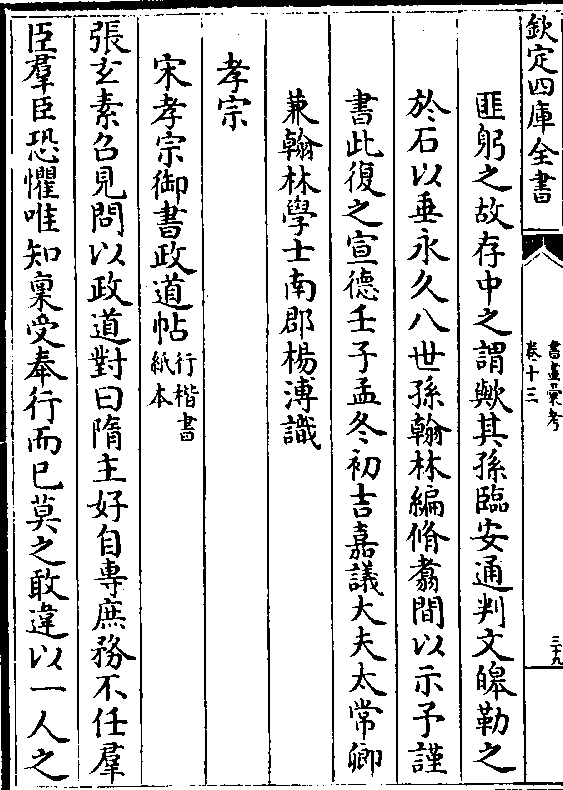 欽定四庫全書
書畫彙考
卷十三
三十九
匪躬之故存中之謂歟其孫臨安通判文皞勒之
於石以垂永久八世孫翰林編脩翥間以示予謹
書此復之宣德壬子孟冬初吉嘉議大夫太常卿
兼翰林學士南郡楊溥識
孝宗
宋孝宗御書政道帖行楷書
紙本
張玄素召見問以政道對曰隋主好自專庶務不任羣
臣羣臣恐懼唯知稟受奉行而已莫之敢違以一人之